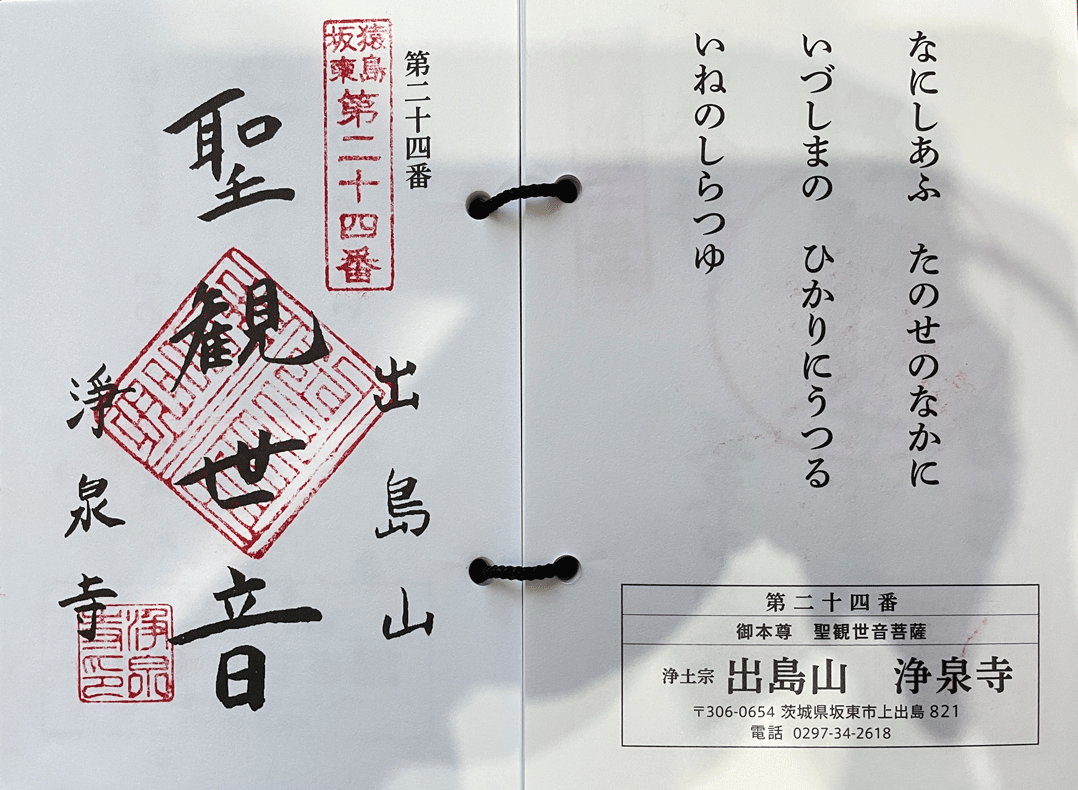 なにしあふ　たのせのなかに
いづしまの　ひかりにうつる
いねのしらつゆ
第二十四番
御本尊　聖観世音菩薩
浄土宗 出島山　浄泉寺
〒306-0654 茨城県坂東市上出島 821
電話 0297-34-2618
第二十四番
猿島
坂東
第二十四番
出島山
聖観世音
浄泉寺
浄泉
寺印